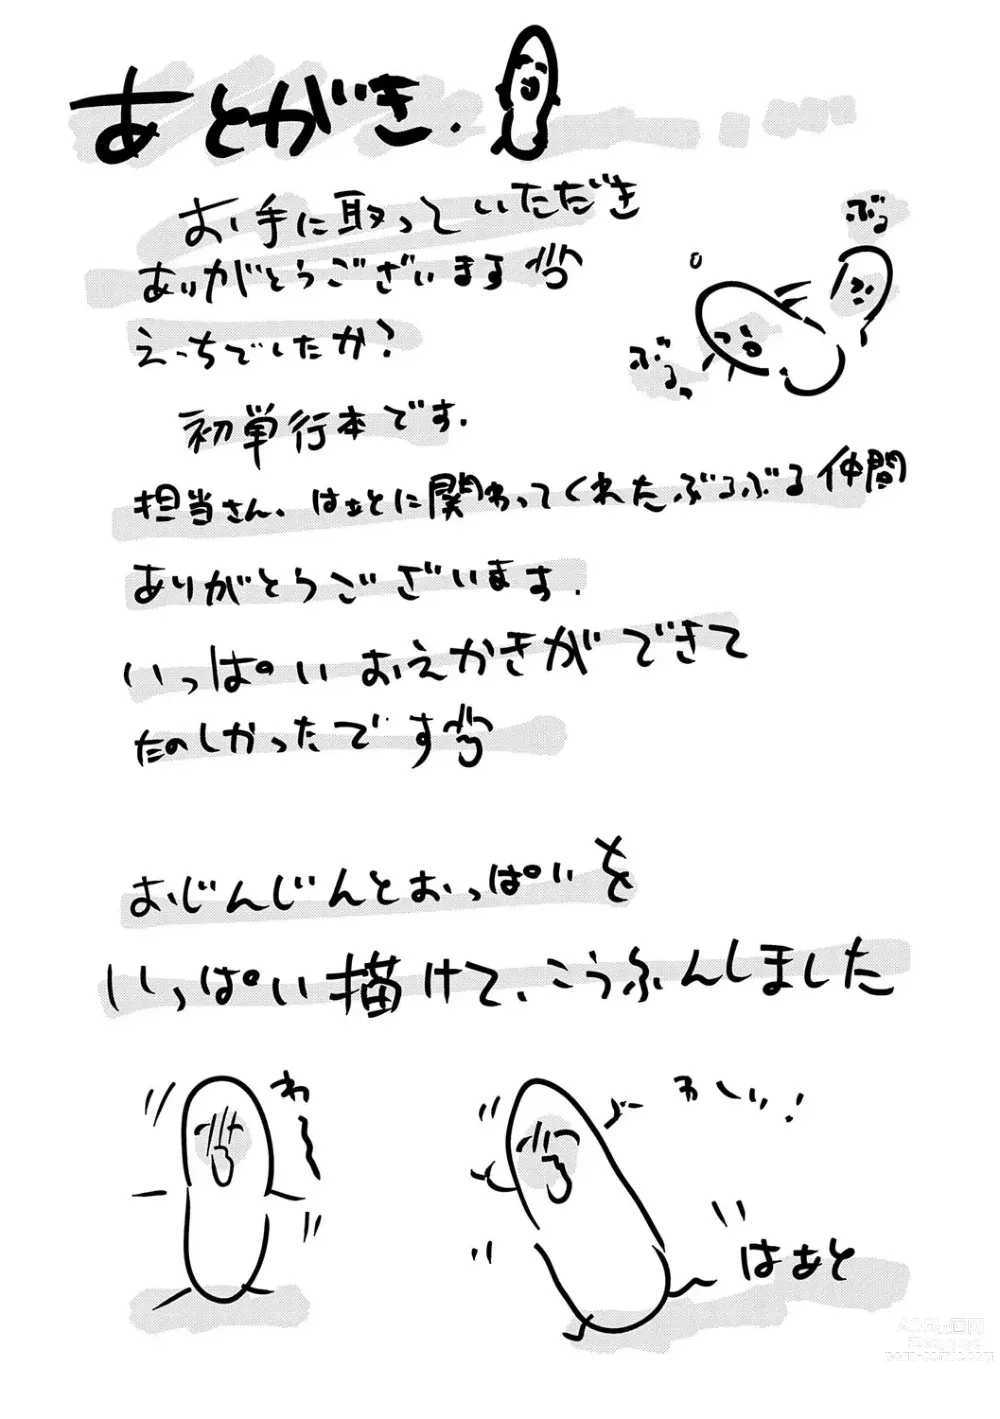 あとがき.
お手に取っていただき
ありがとうございます
ぶる
ぶるっ
えっちでしたか?
初単行本です.
担当さん、はぁとに関わってくれたぶるぶる仲間
ありがとうございます.
いっぱいおえかきができて
たのしかったです
おじんじんとおっぱいを
いっぱい描けて、こうふんしました
わ〜
わーい!
はぁと